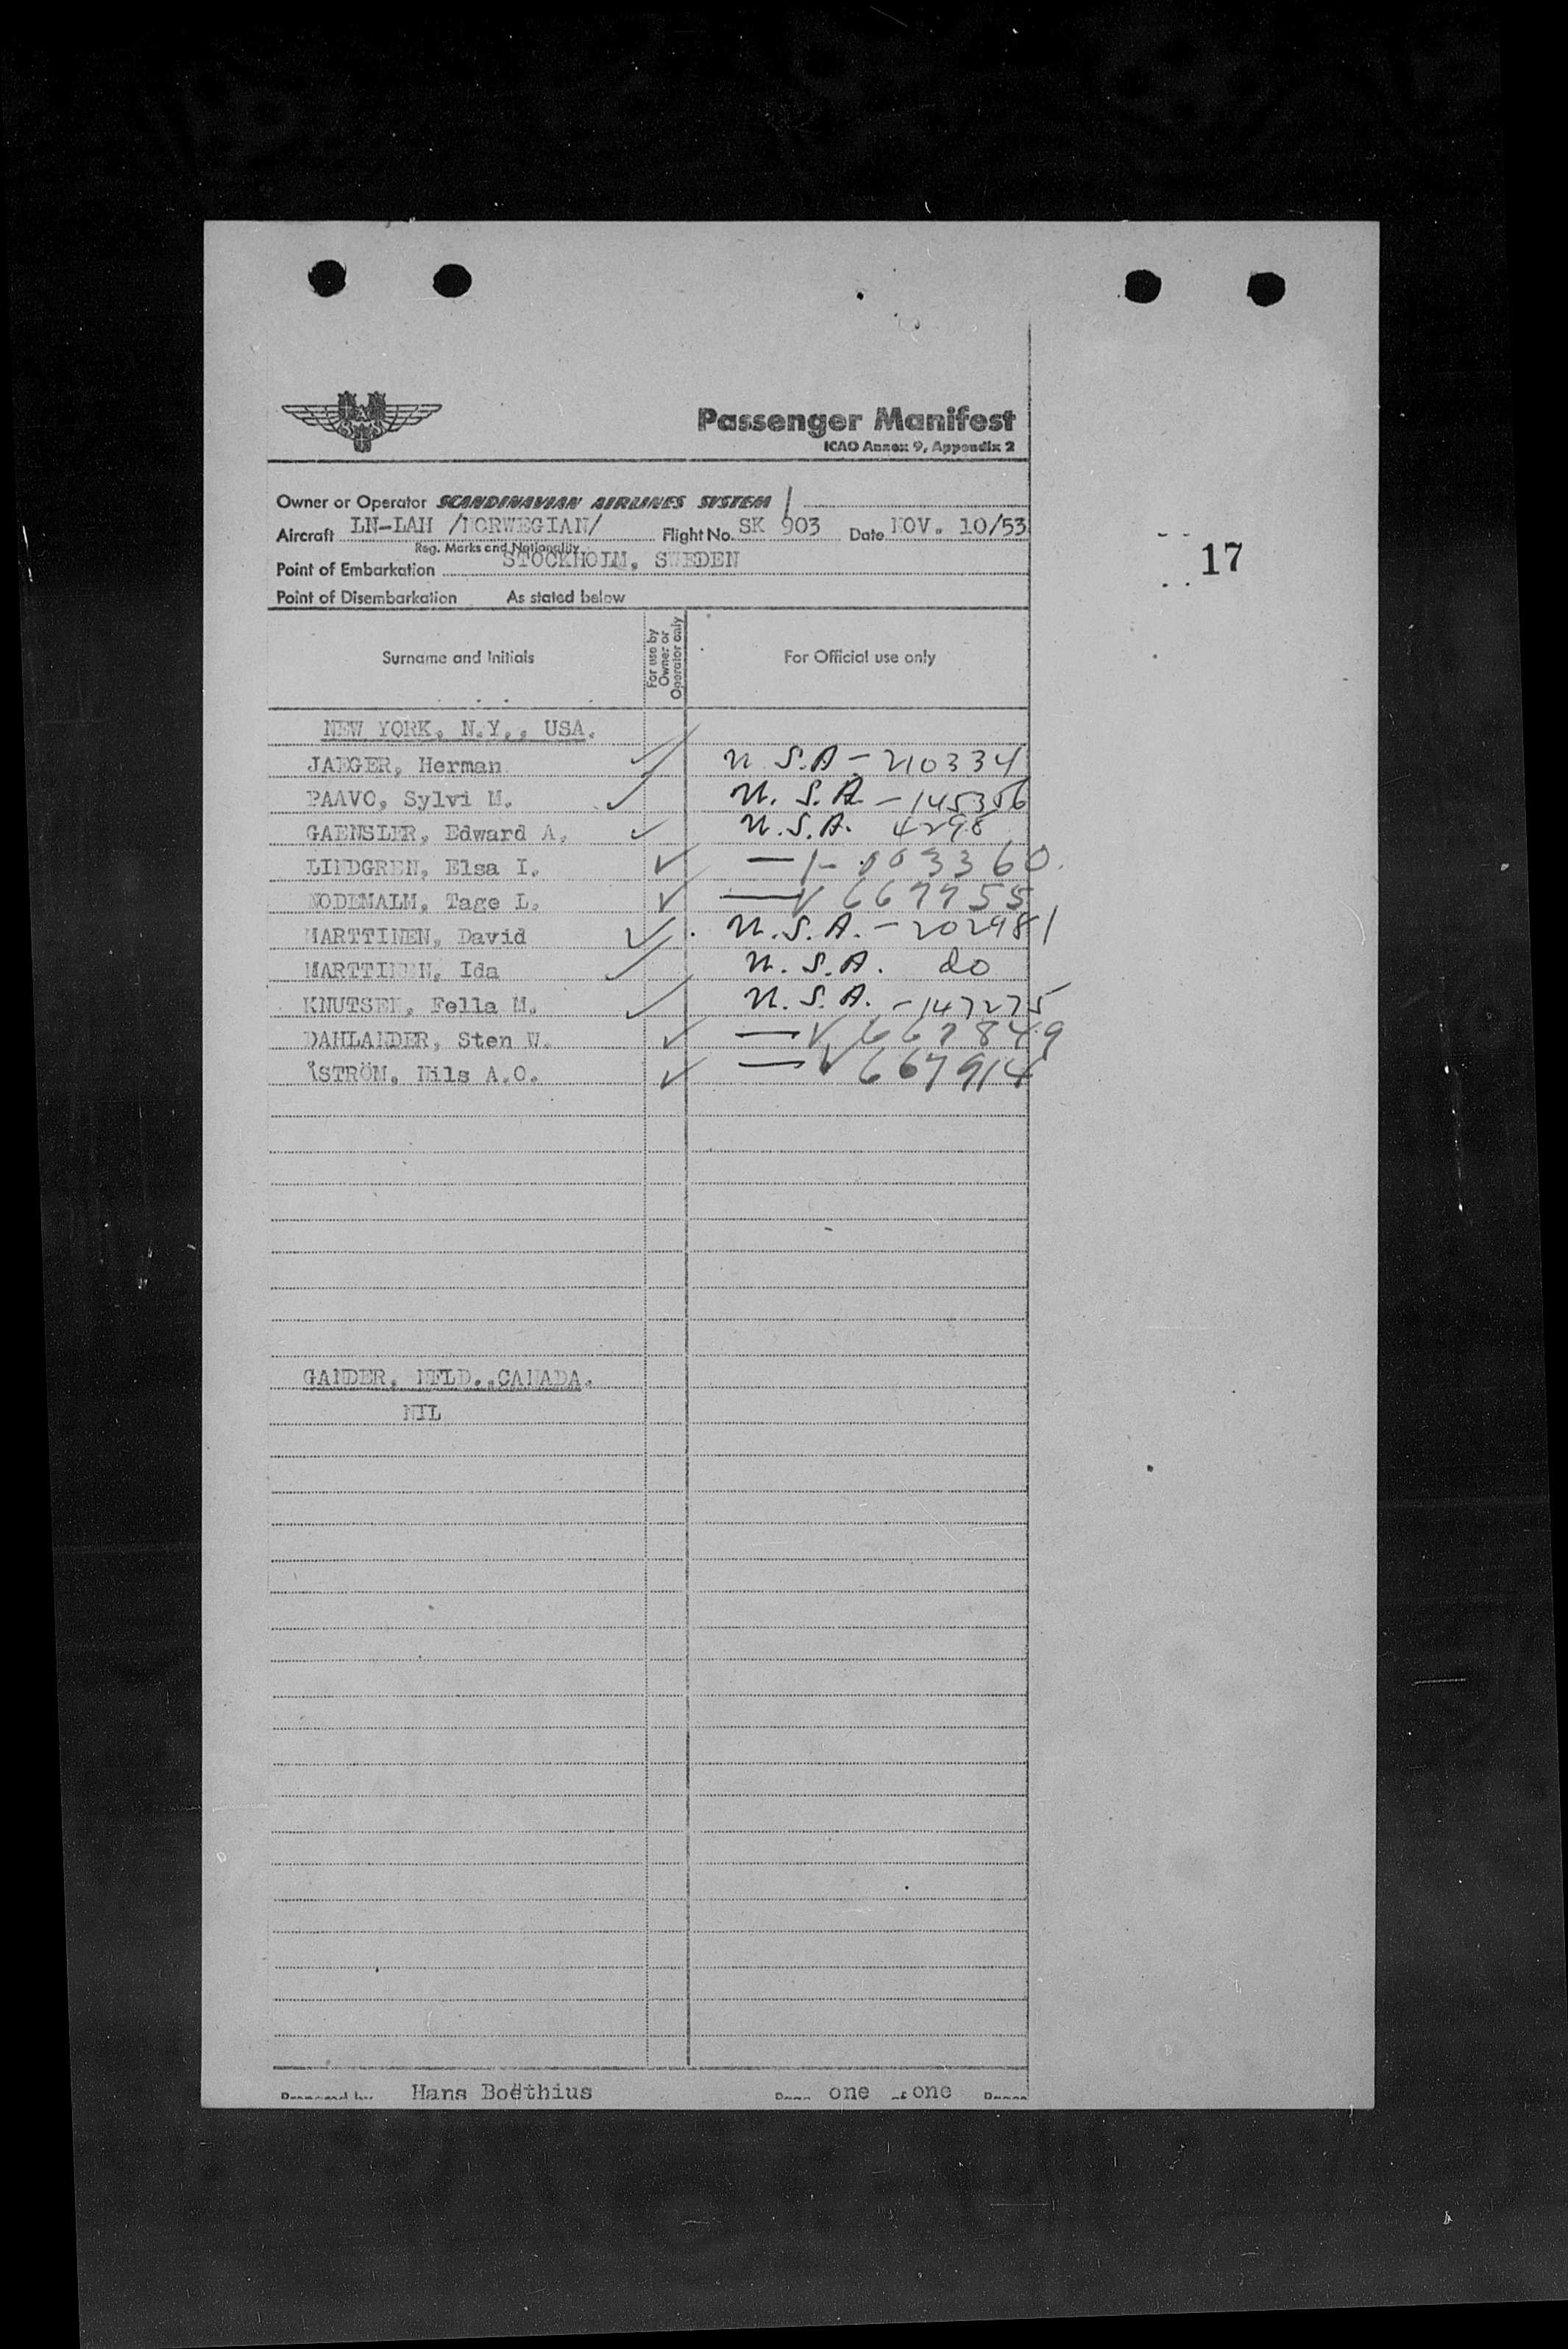 Passenger Manifest
ICAO Annex 9, Appendix 2
Owner or Operator SCANDINAVIAN AIRLINES SYSTEM
Aircraft LN-LAH /NORWEGIAN/ Flight No. SK 903 Date NOV. 10/53
Reg. Marks and Nationality
Point of Embarkation STOCKHOLM, SWEDEN
17
Point of Disembarkation As stated below
Surname and Initials For use by Owner or Operator only For Official use only
NEW YORK, N.Y., USA.
JAEGER, Herman U.S.A - 210334
PAAVO, Sylvi M. U.S.A - 145356
GAENSLER, Edward A. U.S.A. 4298
LINDGREN, Elsa I. 3360
NODEMALM, Tage L. V 667755
MARTTINEN, David U.S.A. - 202981
MARTTINEN, Ida U.S.A. do
KNUTSEN, Fella M. U.S.A. - 147275
DAHLANDER, Sten W. V 667849
ÅSTRÖM, Nils A.O. V 667914
GANDER, NFLD.,CANADA.
NIL
Prepared by Hans Boëthius Page one of one Pages